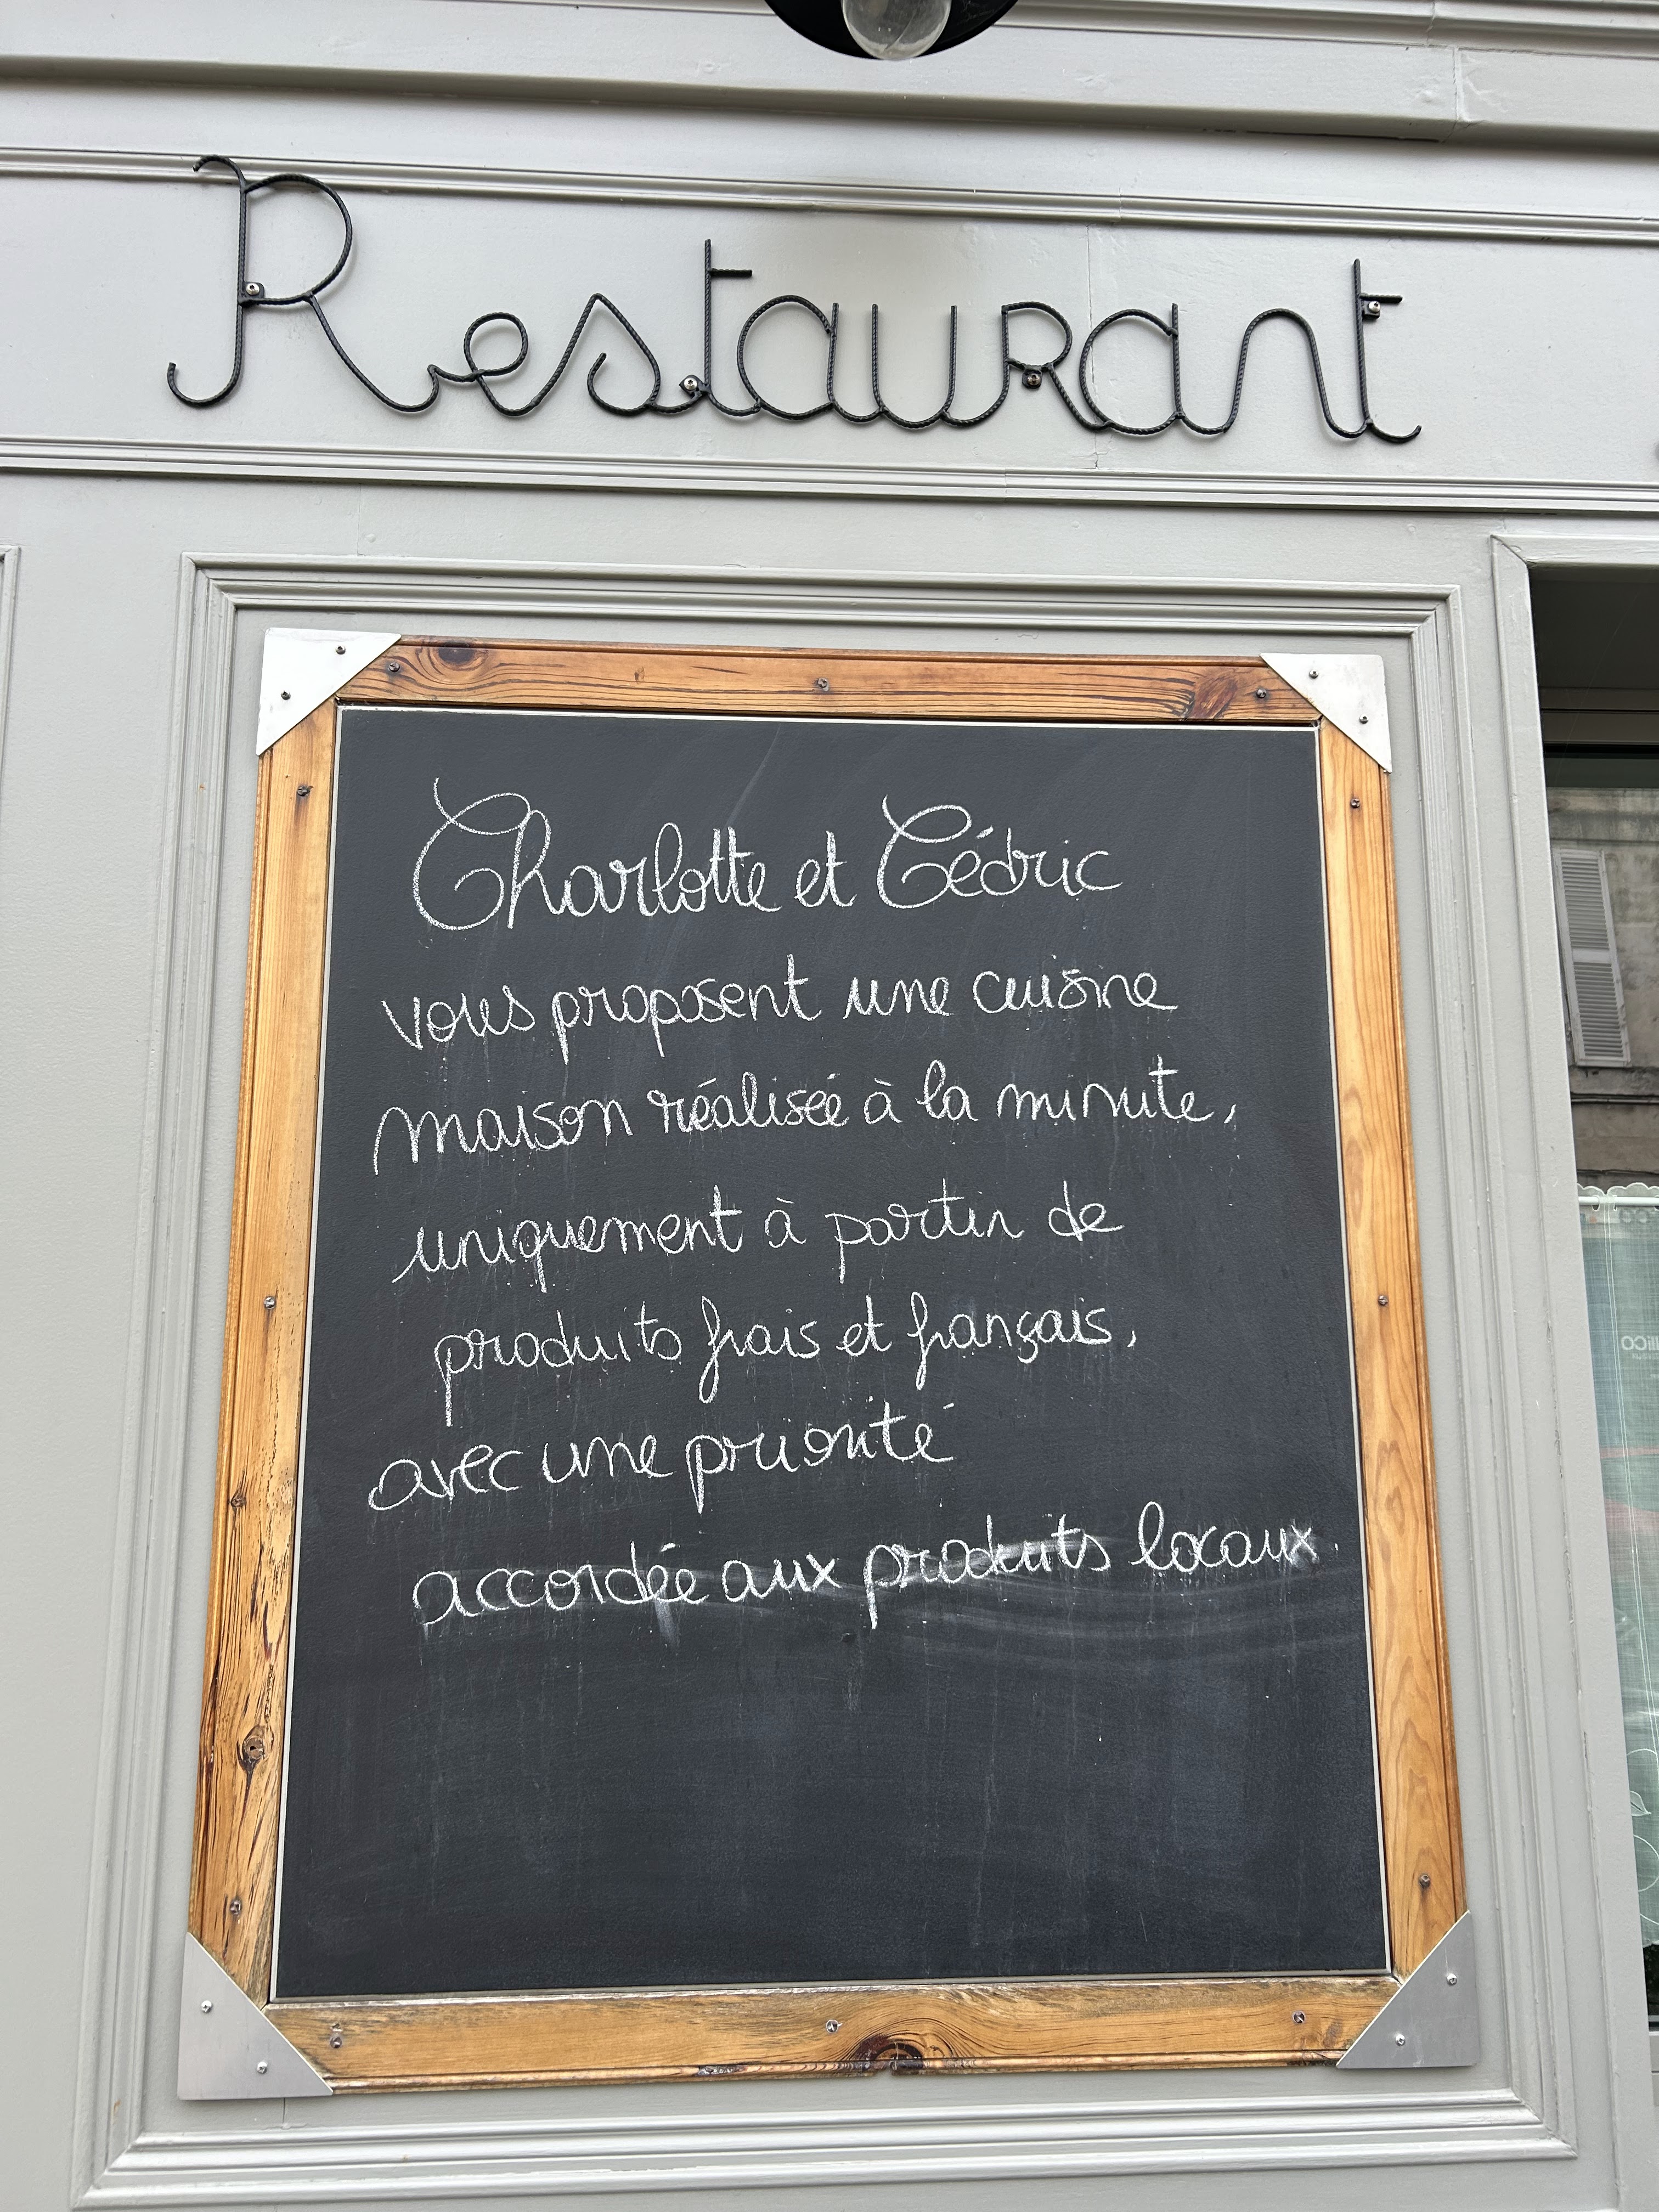 Restaurant
Charlotte et Cédric
vous proposent une cuisine
maison réalisée à la minute,
uniquement à partir de
produits frais et français,
avec une priorité
accordée aux produits locaux.